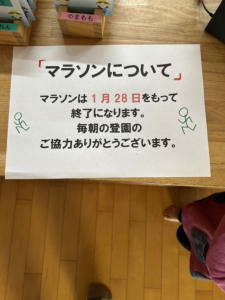 やまもも
「マラソンについて」
マラソンは1月28日をもって
終了になります。
毎朝の登園の
ご協力ありがとうございます。